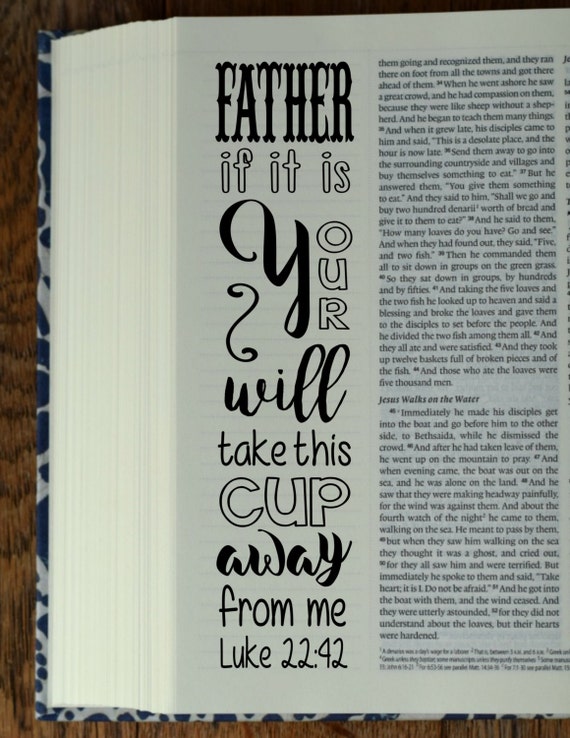 FATHER
if it is
YOUR
will
take this
CUP
away
from me
Luke 22:42
them going and recognized them, and they ran
there on foot from all the towns and got there
ahead of them. 34 When he went ashore he saw
a great crowd, and he had compassion on them,
because they were like sheep without a shep-
herd. And he began to teach them many things.
35 And when it grew late, his disciples came to
him and said, "This is a desolate place, and the
hour is now late. 36 Send them away to go into
the surrounding countryside and villages and
buy themselves something to eat." 37 But he
answered them, "You give them something
to eat." And they said to him, "Shall we go and
buy two hundred denarii² worth of bread and
give it to them to eat?" 38 And he said to them,
"How many loaves do you have? Go and see."
And when they had found out, they said, "Five,
and two fish." 39 Then he commanded them
all to sit down in groups on the green grass.
40 So they sat down in groups, by hundreds
and by fifties. 41 And taking the five loaves and
the two fish he looked up to heaven and said a
blessing and broke the loaves and gave them
to the disciples to set before the people. And
he divided the two fish among them all. 42 And
they all ate and were satisfied. 43 And they took
up twelve baskets full of broken pieces and of
the fish. 44 And those who ate the loaves were
five thousand men.
Jesus Walks on the Water
45 Immediately he made his disciples get
into the boat and go before him to the other
side, to Bethsaida, while he dismissed the
crowd. 46 And after he had taken leave of them,
he went up on the mountain to pray. 47 And
when evening came, the boat was out on the
sea, and he was alone on the land. 48 And he
saw that they were making headway painfully,
for the wind was against them. And about the
fourth watch of the night³ he came to them,
walking on the sea. He meant to pass by them,
49 but when they saw him walking on the sea
they thought it was a ghost, and cried out,
50 for they all saw him and were terrified. But
immediately he spoke to them and said, "Take
heart; it is I. Do not be afraid." 51 And he got into
the boat with them, and the wind ceased. And
they were utterly astounded, 52 for they did not
understand about the loaves, but their hearts
were hardened.